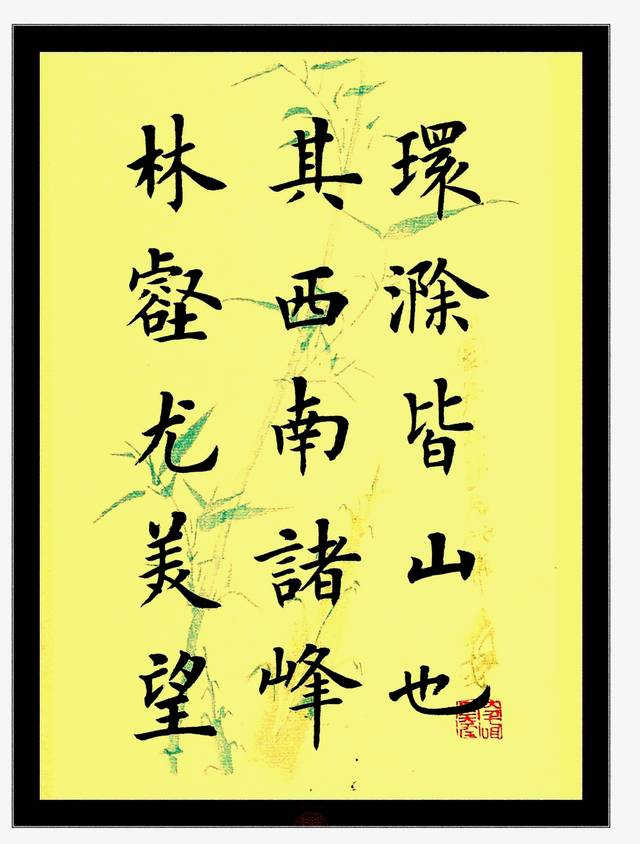 環滁皆山也
其西南諸峰
林壑尤美望